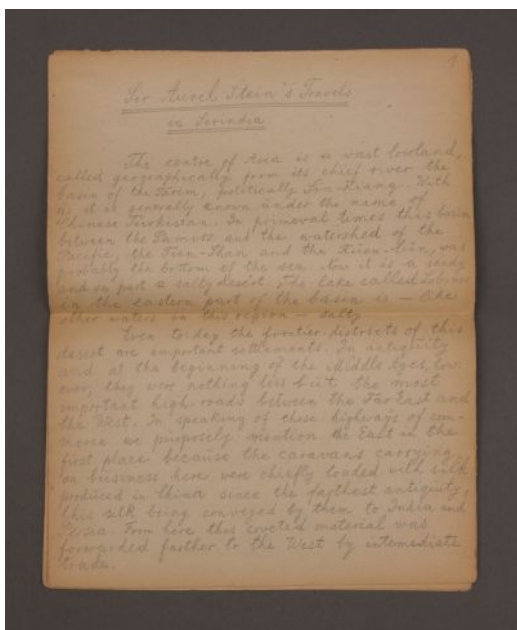 1
Sir Aurel Stein's Travels
in Serindia
The centre of Asia is a vast lowland,
called geographically from its chief river the
basin of the Tarim, politically Sin-Kiang. With
us it is generally known under the name of
Chinese Turkestan. In primeval times this basin
between the Pamirs and the watershed of the
Pacific, the Tien-Shan and the Kuen-lün, was
probably the bottom of the sea. Now it is a sandy
and in part a salty desert. The lake called Lobnor
in the eastern part of the basin is — like
other waters in this region — salty.
Even to-day the frontier districts of this
desert are important settlements. In antiquity
and at the beginning of the Middle Ages, how-
ever, they were nothing less but the most
important high roads between the Far East and
the West. In speaking of these highways of com-
merce we purposely mention the East in the
first place because the caravans carrying
on business here were chiefly loaded with silk
produced in China since the farthest antiquity,
this silk being conveyed by them to India and
Persia. From here this coveted material was
forwarded farther to the West by intermediate
trade.